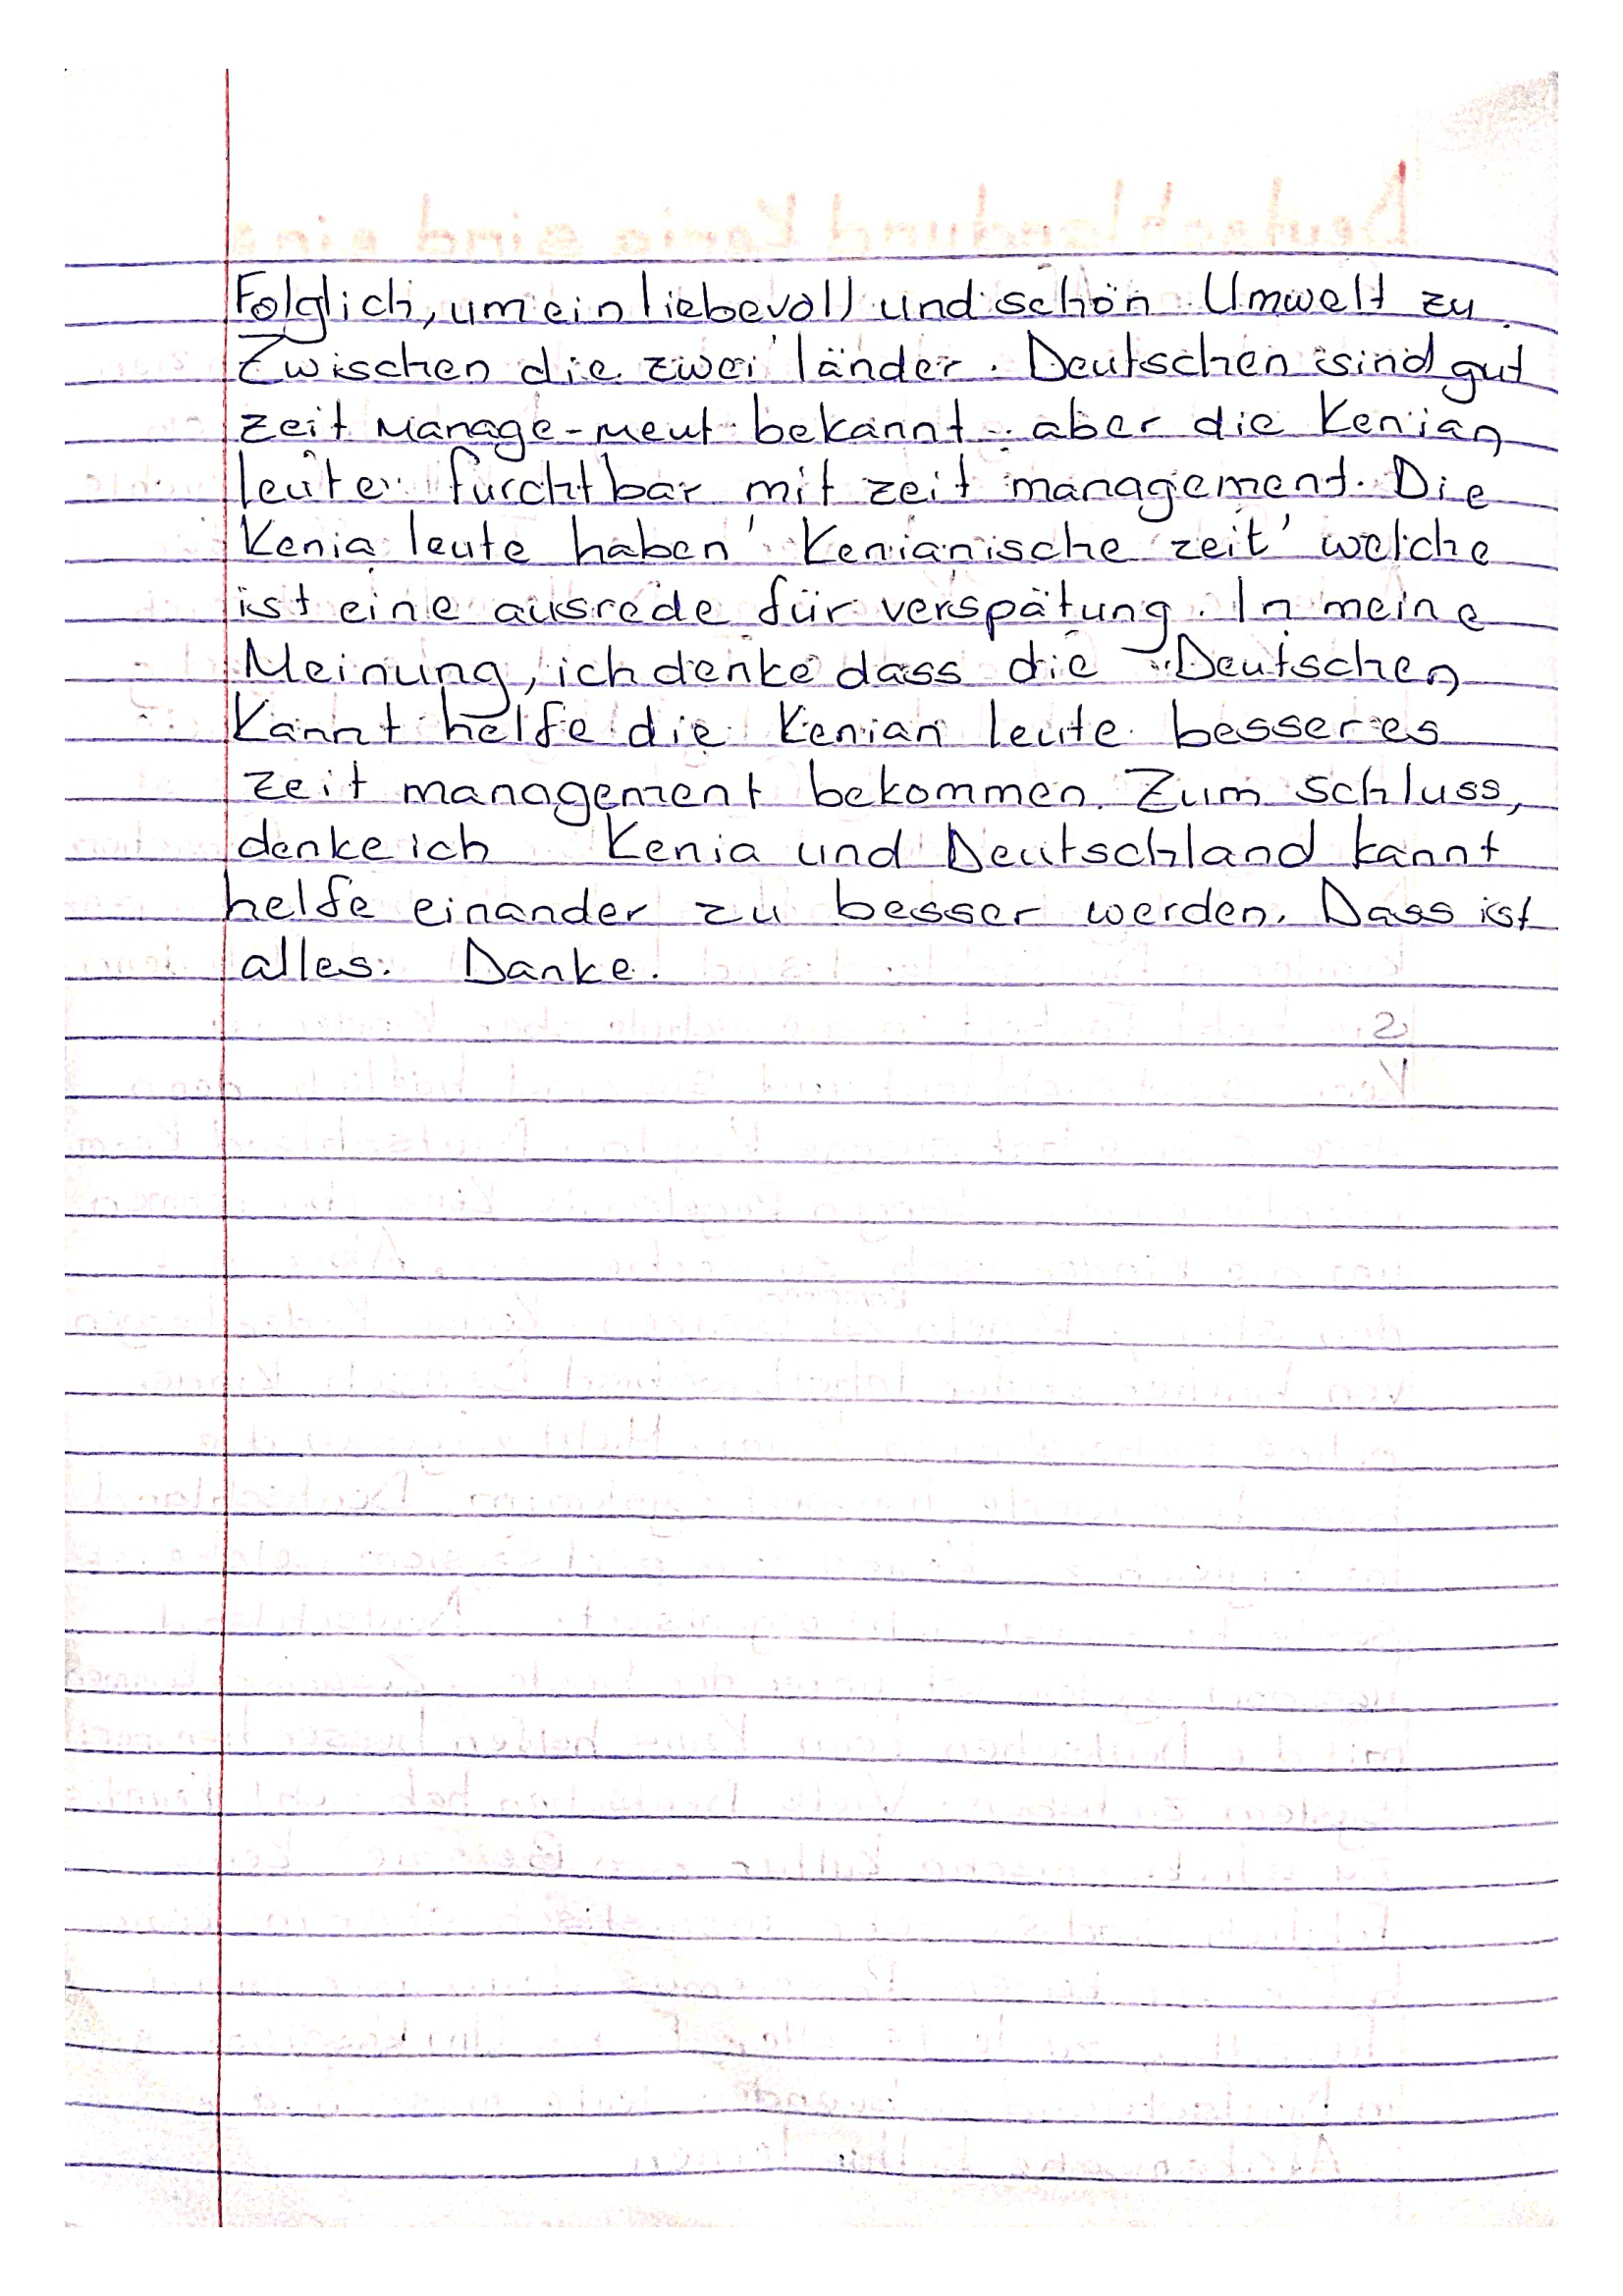 Folglich, um ein liebevoll und schön Umwelt zu
Zwischen die zwei länder. Deutschen sind gut
zeit Manage-ment bekannt aber die Kenian
leute furchtbar mit zeit management. Die
Kenia leute haben 'Kenianische zeit' welche
ist eine ausrede für verspätung. In meine
Meinung, ich denke dass die Deutschen
kannt helfe die Kenian leute besseres
zeit management bekommen. Zum schluss,
denke ich Kenia und Deutschland kannt
helfe einander zu besser werden. Dass ist
alles. Danke.